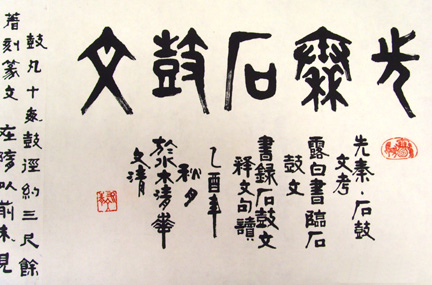 先秦石鼓文
先秦·石鼓
文考
露白書臨石
鼓文
書錄石鼓文
釋文句讀
乙酉年
秋夕
於水木清華
文清
鼓凡十每鼓徑約三尺餘
刻篆文在隋以前未見